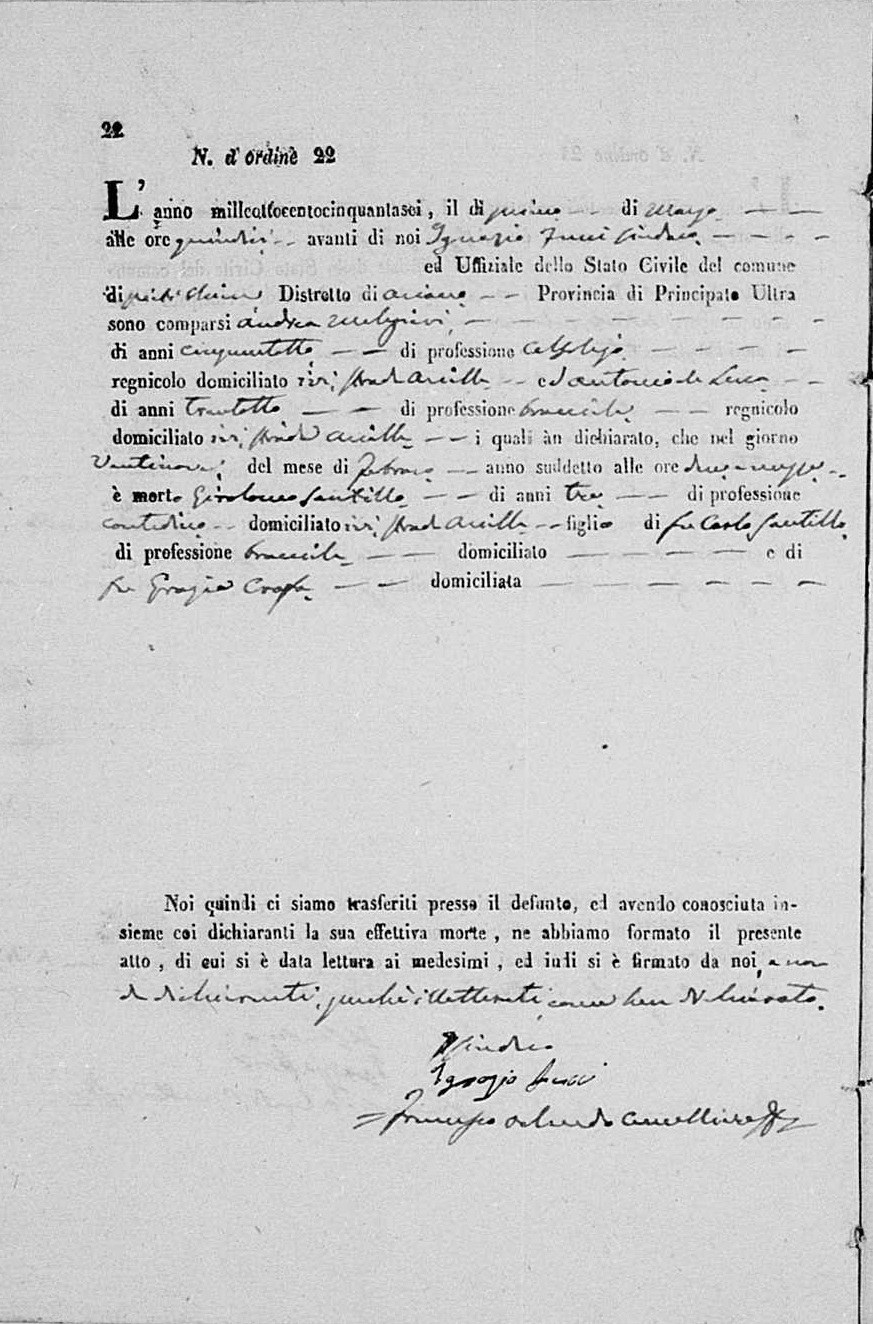 22
N. d'ordine 22
L'anno millcottocentocinquantasei, il di primo di Marzo
alle ore quindici avanti di noi Ignazio Jucci Sindaco
ed Uffiziale dello Stato Civile del comune
di Distretto di Ariano Provincia di Principato Ultra
sono comparsi Andrea
di anni cinquantotto di professione
regnicolo domiciliato ivi, strada ed Antonio de Luca
di anni trentotto di professione bracciale regnicolo
domiciliato ivi, strada i quali àn dichiarato, che nel giorno
Ventinove, del mese di Febraro anno suddetto alle ore
è morto Girolomo Santillo di anni tre di professione
contadino domiciliato ivi, strada figlio di fu Carlo Santillo
di professione bracciale domiciliato e di
fu Grazia domiciliata
Noi quindi ci siamo trasferiti presso il defunto, ed avendo conosciuta in-
sieme coi dichiaranti la sua effettiva morte, ne abbiamo formato il presente
atto, di cui si è data lettura ai medesimi, ed indi si è firmato da noi, e non
da dichiaranti, perchè illetterati, come han dichiarato.
Il Sindaco
Ignazio Jucci
= Francesco Orlando Cancelliere